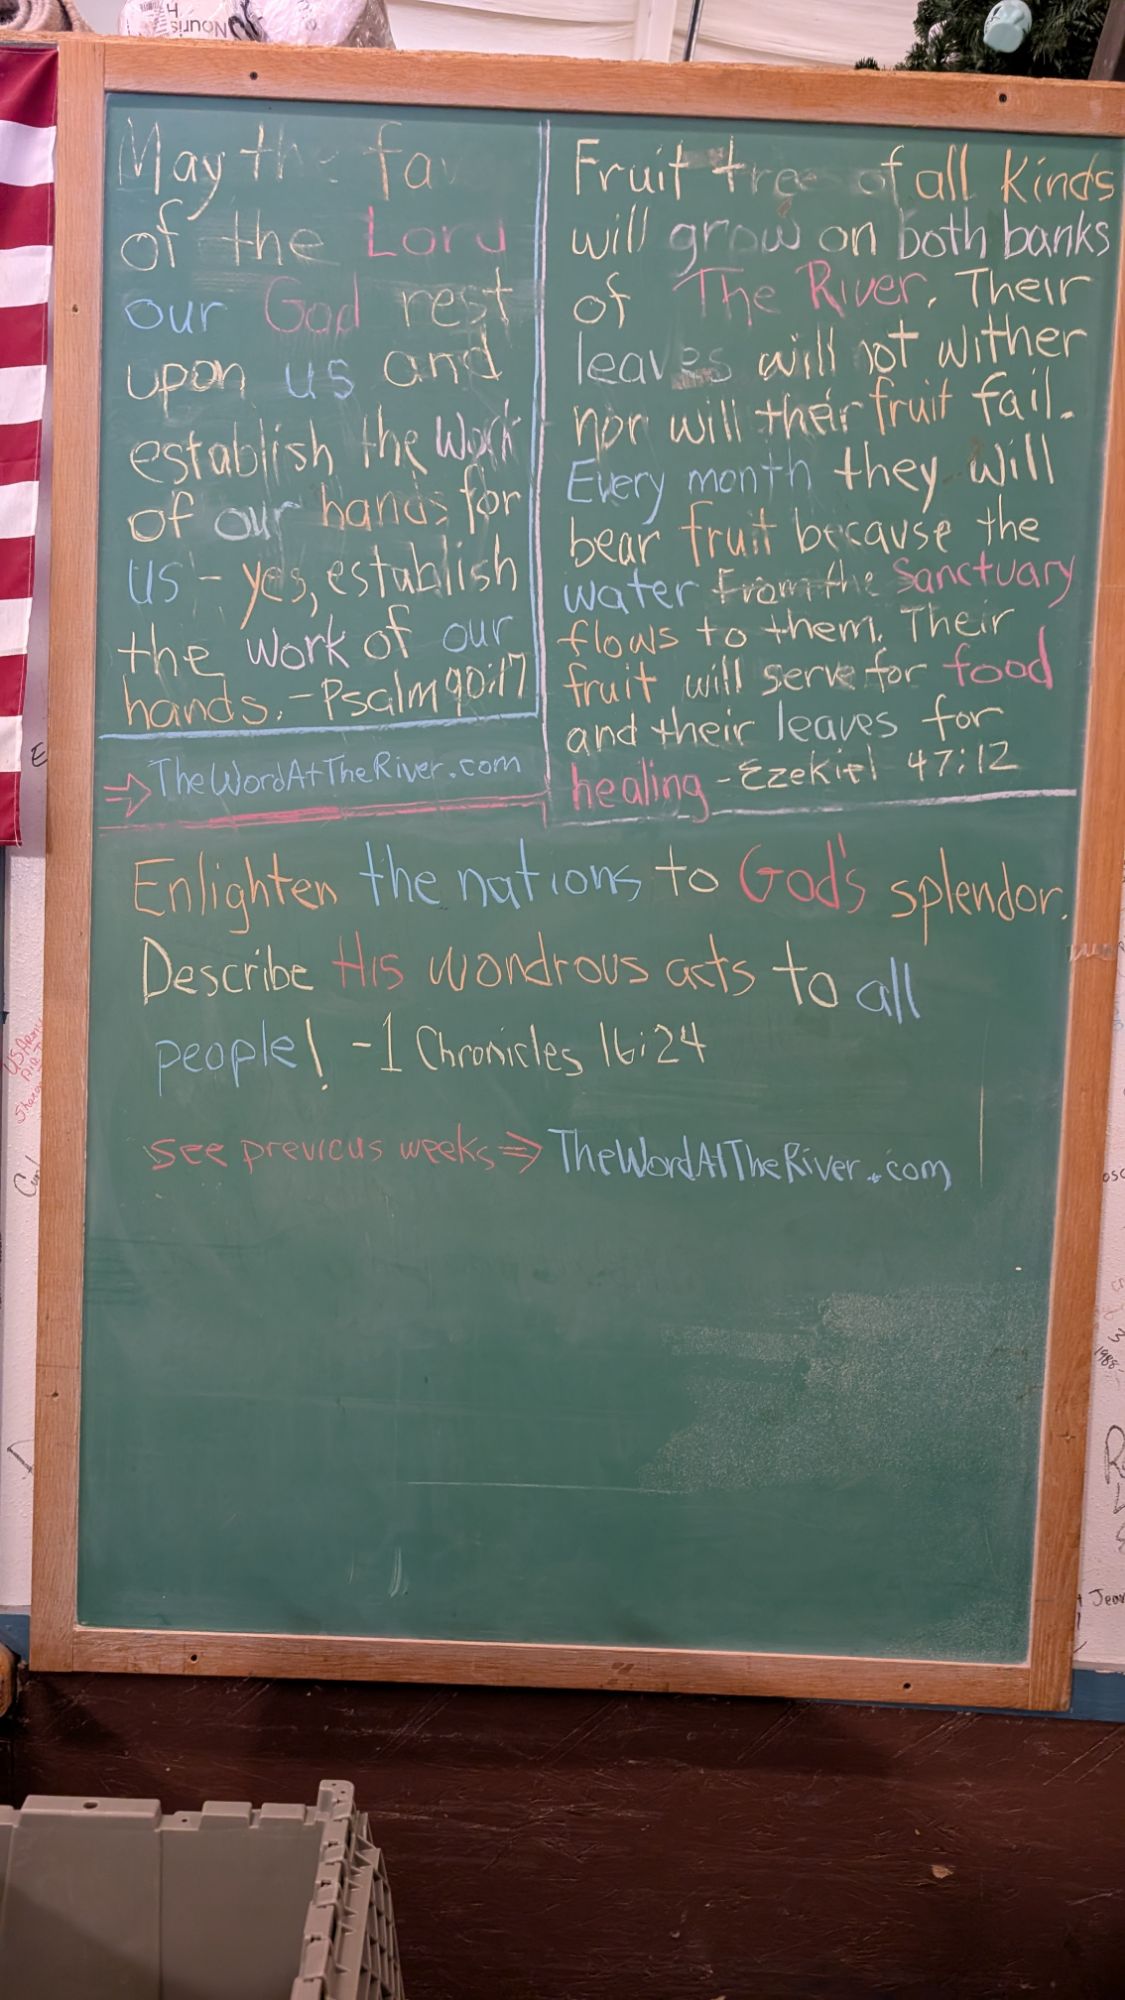 May the fa
of the Lord
our God rest
upon us and
establish the work
of our hands for
us - yes, establish
the work of our
hands. - Psalm 90:17
⇒ TheWordAtTheRiver.com
Fruit trees of all kinds
will grow on both banks
of The River. Their
leaves will not wither
nor will their fruit fail.
Every month they will
bear fruit because the
water from the Sanctuary
flows to them. Their
fruit will serve for food
and their leaves for
healing - Ezekiel 47:12
Enlighten the nations to God's splendor.
Describe His wondrous acts to all
people! - 1 Chronicles 16:24
see previous weeks ⇒ TheWordAtTheRiver.com
Nouris
H
E
US Army
1988
Jean